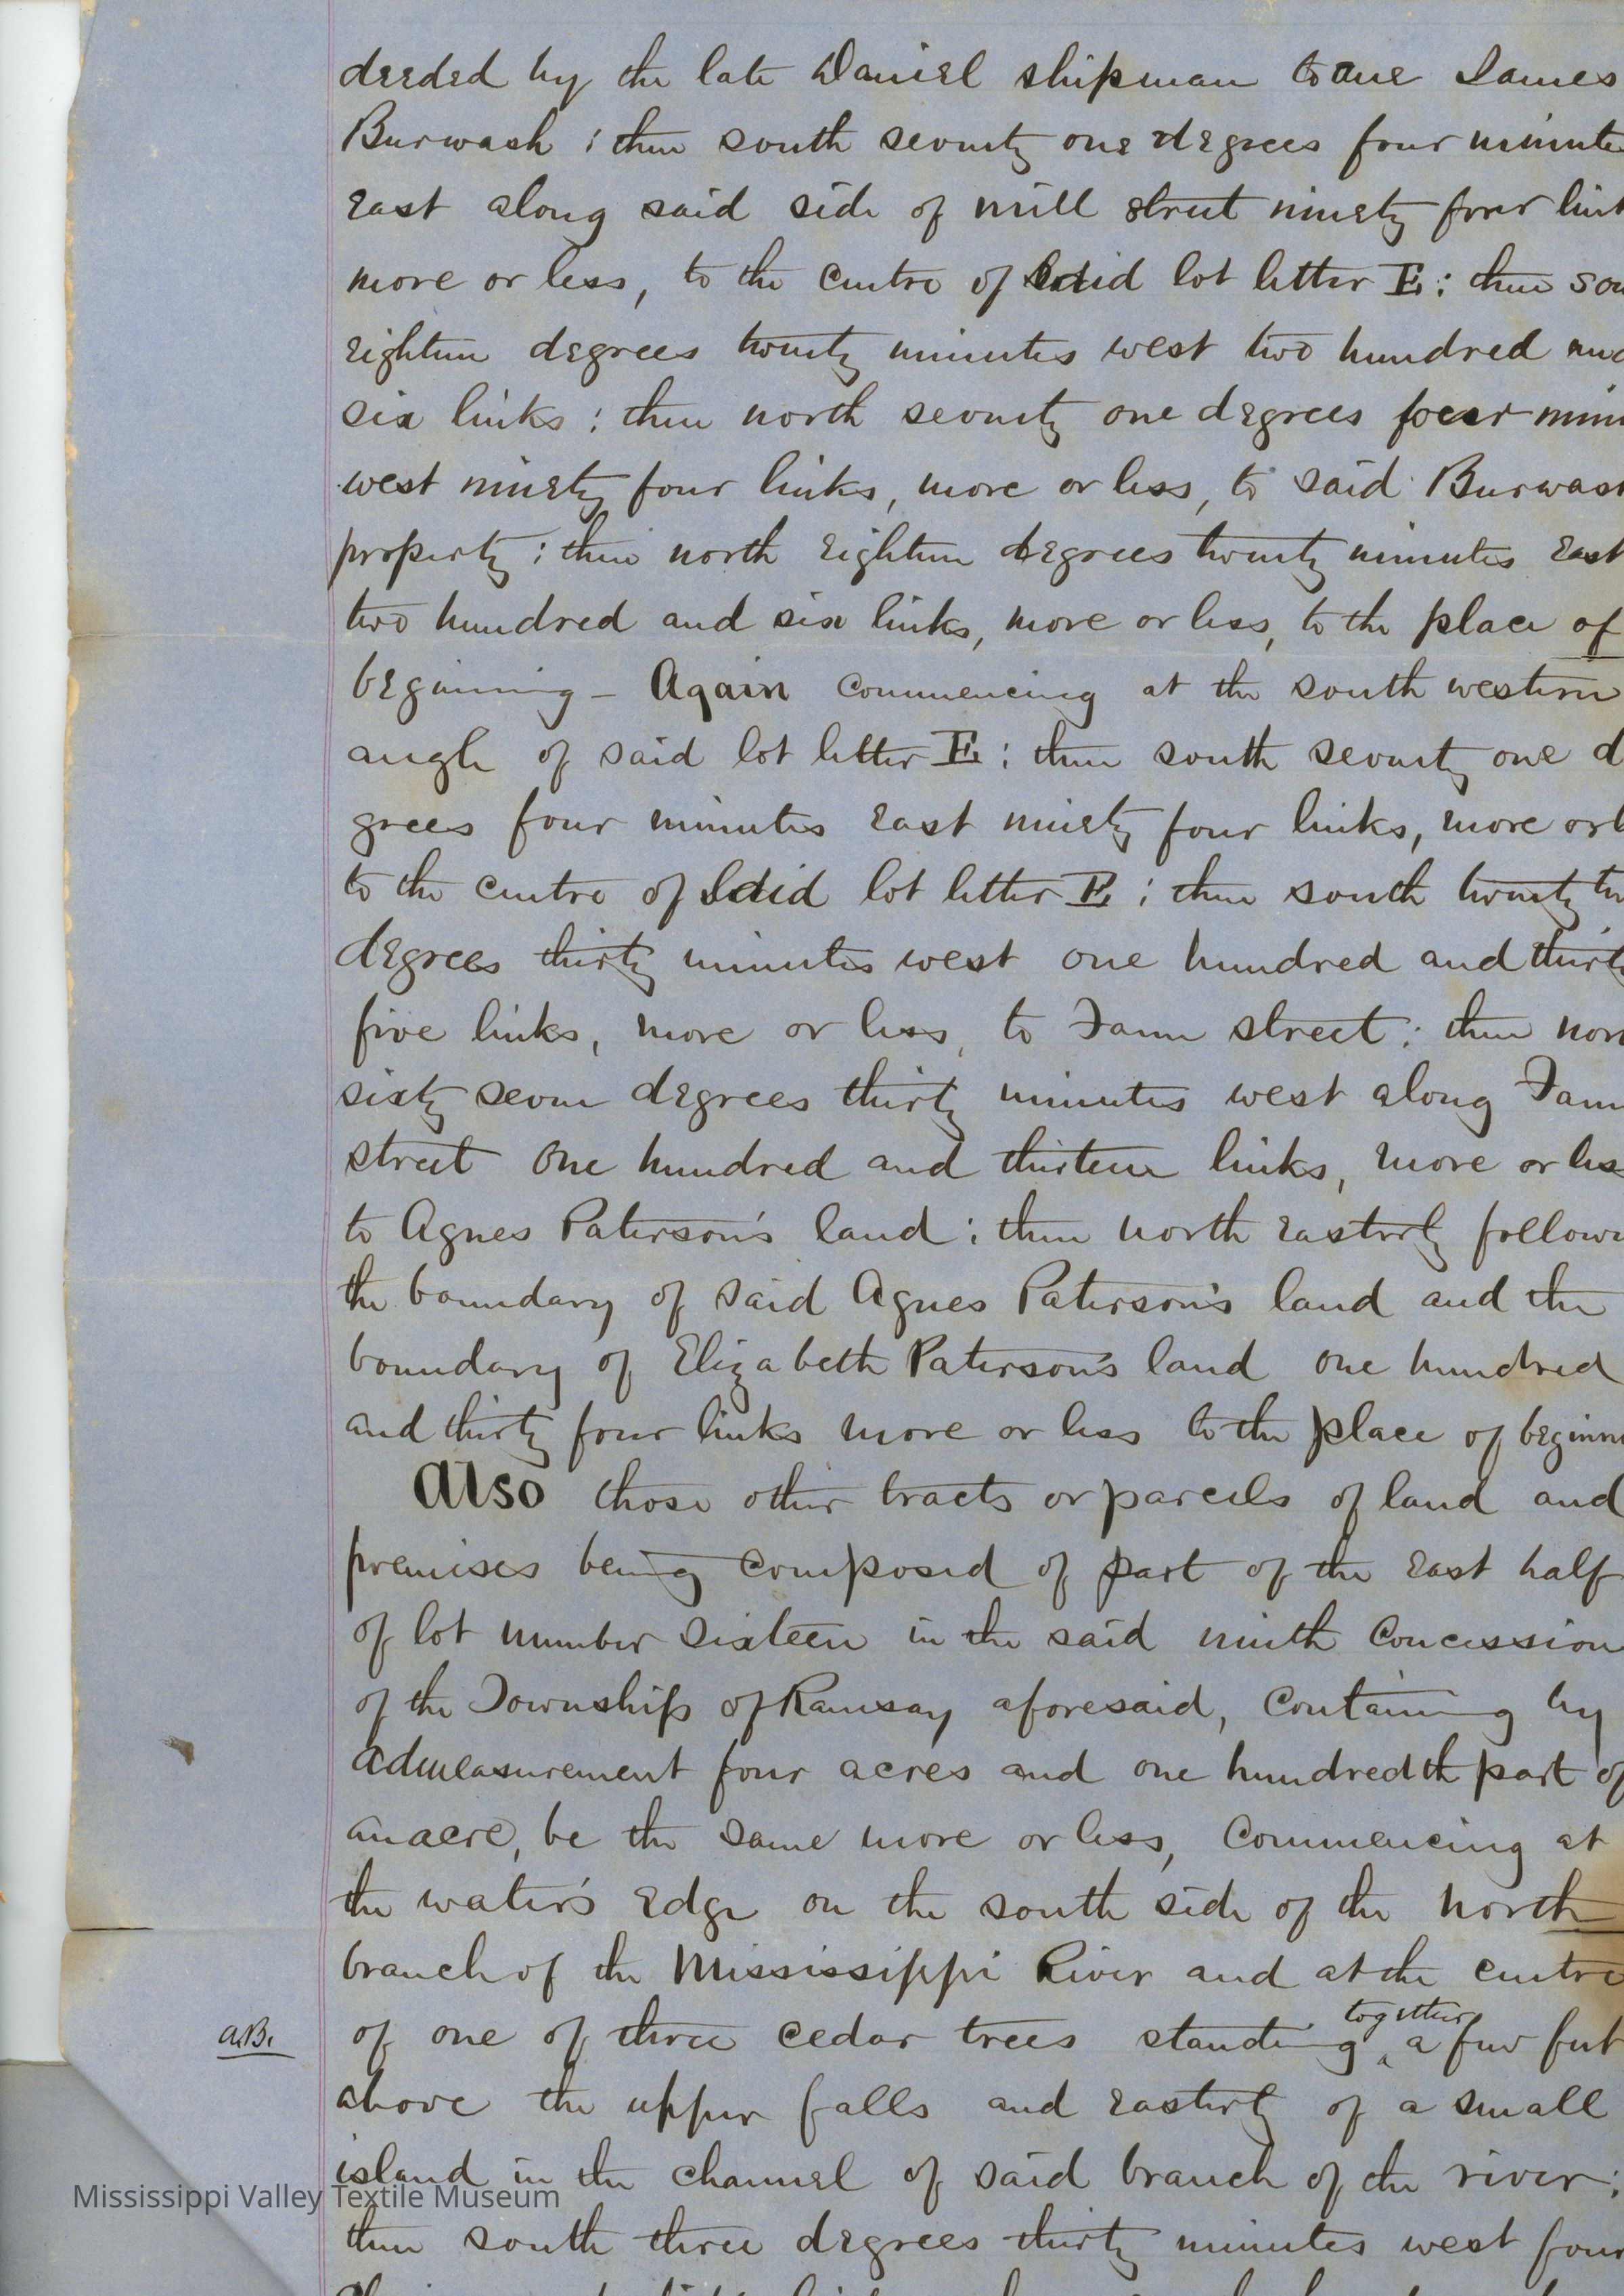 deeded by the late Daniel Shipman to one James
Burwash ; then south seventy one degrees four minute
east along said side of mill street ninety four link
more or less, to the centre of said lot letter E : then sou
eighteen degrees twenty minutes west two hundred and
six links ; then north seventy one degrees four min
west ninety four links, more or less, to said Burwash
property ; then north eighteen degrees twenty minutes east
two hundred and six links, more or less, to the place of
beginning – Again commencing at the south western
angle of said lot letter E ; then south seventy one d
grees four minutes east ninety four links, more or l
to the centre of said lot letter E ; then south twenty tw
degrees thirty minutes west one hundred and thirty
five links, more or less, to Farm street : then nor
sixty seven degrees thirty minutes west along Farm
street one hundred and thirteen links, more or less
to Agnes Paterson's land ; then north easterly followi
the boundary of said Agnes Paterson's land and the
boundary of Elizabeth Paterson's land one hundred
and thirty four links more or less to the place of beginn
Also those other tracts or parcels of land and
premises being composed of part of the east half
of lot number sixteen in the said ninth Concession
of the Township of Ramsay aforesaid, containing by
admeasurement four acres and one hundredth part of
an acre, be the same more or less, commencing at
the water's edge on the south side of the north
branch of the Mississippi River and at the centre
a.B. of one of three cedar trees standing together a few feet
above the upper falls and easterly of a small
island in the channel of said branch of the river ;
Mississippi Valley Textile Museum
then south three degrees thirty minutes west four